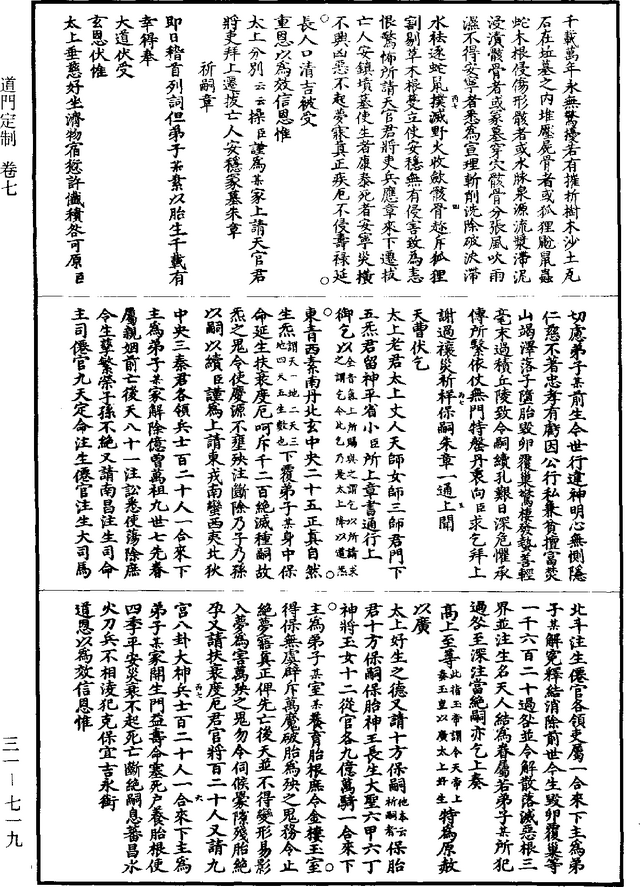 道門定制 卷七
三一—七一九
千載萬年永無驚擾若有摧折樹木沙土瓦
石在坵墓之內堆壓屍骨者或狐狸鼢鼠蟲
蛇木根侵傷形骸者或水脉泉源流漿滯泥
浸漬骸骨者或冢墓穿穴骸骨分張風吹雨
濕不得安寧者悉為宣理斬削洗除破決滯
水袪逐蛇鼠撲滅野火收斂骸骨趂斥狐狸
剗剔草木根莖立使安穩無有侵害致為恚
恨驚怖所請天官君將吏兵應章來下遷拔
亡人安鎮墳墓使生者康泰死者安寧災橫
不興凶惡不起夢寐真正疾厄不侵壽祿延
長人口清吉被受
重恩以為效信恩惟
太上分別云云操臣謹為某家上請天官君
將吏拜上遷拔亡人安穩冢墓朱章
祈嗣章
即日稽首列詞但弟子某素以胎生千載有
幸得奉
大道伏受
玄恩伏惟
太上垂慈好生濟物宿愆許懺積咎可原臣
切慮弟子某前生今世行違神明心無惻隱
仁慈不著忠孝有虧因公行私兼貧擅富焚
山竭澤落子墮胎毀卵覆巢驚棲發蟄善輕
毫末過積丘陵致令嗣續孔艱日深危懼承
傳所繫依仗無門特罄丹衷向臣求乞拜上
謝過禳災祈祥保嗣朱章一通上聞
天曹伏乞
太上老君太上丈人天師女師三師君門下
五炁君留神平省小臣所上章書通行上
御乞以全者氣上所賜與之謂乞以所請求之謂乞今此乞乃是太上降以道炁
東青西素南丹北玄中央二十五正真自然
生炁謂天一地二天三地四天五生數也下覆弟子某身中保
命延生扶衰度厄呵斥千二百絕滅種嗣故
炁之鬼令使慶源不壅殃注斷除乃子乃孫
以嗣以續臣謹為上請東戎南蠻西夷北狄
中央三秦君各領兵士百二十人一合來下
主為弟子某家解除億曾萬祖九世七先眷
屬親姻前亡後夭八十一注訟悉使蕩除庶
令生孽繁榮子孫不絕又請南昌注生司命
主司僊官九天定命注生僊官注生大司馬
北斗注生僊官各領吏屬一合來下主為弟
子某解寃釋結消除前世今生毀卵覆巢等
一千六百二十過咎並令解散落滅惡根三
界並注生名天人結為眷屬若弟子某所犯
過咎至深注當絕嗣亦乞上奏
高上至尊此指玉帝謂今天帝上奏玉皇以廣太上好生特為原赦
以廣
太上好生之德又請十方保嗣他本云祈嗣者保胎
君十方保嗣保胎神王長生大聖六甲六丁
神將玉女十二從官各九億萬騎一合來下
主為弟子某室某養育胎根庶令金樓玉室
得保無虞辟斥萬魔破胎為殃之鬼務令止
絕夢寤真正俾先亡後夭並不得變形易影
入夢為害萬殃之鬼勿令伺候蒙隙殘胎絕
孕又請扶衰度厄君官將百二十人又請九
宮八卦大神兵士百二十人一合來下主為
弟子某家開生門益壽命塞死戶養胎根使
四季平安災衰不起死亡斷絕嗣息蕃昌水
火刀兵不相淩犯克保宜吉永銜
道恩以為效信恩惟